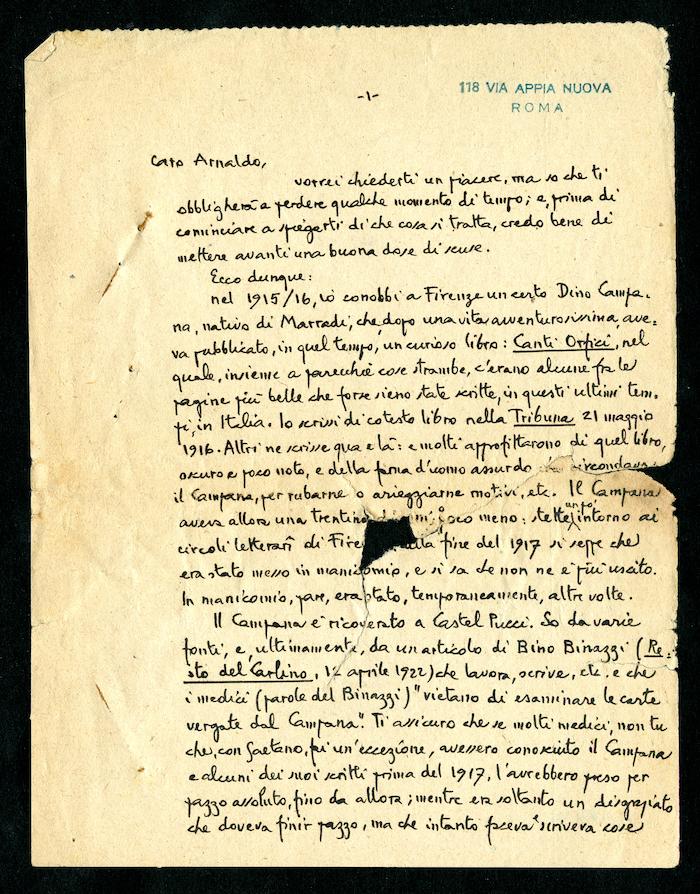 118 VIA APPIA NUOVA
ROMA
-1-
Caro Arnaldo,
vorrei chiederti un piacere, ma so che ti
obbligherà a perdere qualche momento di tempo; e, prima di
cominciare a spiegarti di che cosa si tratta, credo bene di
mettere avanti una buona dose di scuse.
Ecco dunque:
nel 1915/16, io conobbi a Firenze un certo Dino Campa-
na, nativo di Marradi, che, dopo una vita avventurosissima, ave-
va pubblicato, in quel tempo, un curioso libro: Canti Orfici, nel
quale, insieme a parecchie cose strambe, c'erano alcune fra le
pagine più belle che forse sieno state scritte, in questi ultimi tem-
pi, in Italia. Io scrissi di cotesto libro nella Tribuna 21 maggio
1916. Altri ne scrisse qua e là: e molti approfittarono di quel libro,
oscuro e poco noto, e della fama d'uomo assurdo che circondava
il Campana, per rubarne o arieggiarne motivi, etc. Il Campana
aveva allora una trentina d'anni, o poco meno: stette un po' intorno ai
circoli letterarî di Firenze; alla fine del 1917 si seppe che
era stato messo in manicomio, e si sa che non ne è più uscito.
In manicomio, pare, era stato, temporaneamente, altre volte.
Il Campana è ricoverato a Castel Pucci. So da varie
fonti, e, ultimamente, da un articolo di Bino Binazzi (Re-
sto del Carlino, 12 aprile 1922) che lavora, scrive, etc. e che
i medici (parole del Binazzi) "vietano di esaminare le carte
vergate dal Campana". Ti assicuro che se molti medici, non tu
che, con Gaetano, fai un'eccezione, avessero conosciuto il Campana
e alcuni dei suoi scritti prima del 1917, l'avrebbero preso per
pazzo assoluto, fino da allora; mentre era soltanto un disgraziato
che doveva finir pazzo, ma che intanto faceva e scriveva cose